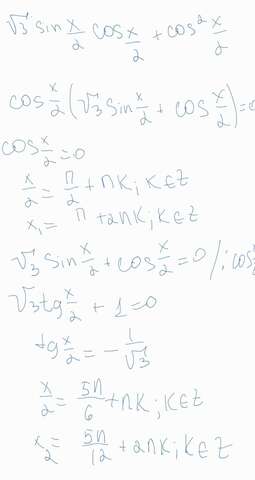 √3 sin x/2 cos x/2 + cos² x/2
cos x/2 (√3 sin x/2 + cos x/2) = 0
cos x/2 = 0
x/2 = π/2 + πk; k∈Z
x₁ = π + 2πk; k∈Z
√3 sin x/2 + cos x/2 = 0 /: cos
√3 tg x/2 + 1 = 0
tg x/2 = - 1/√3
x/2 = 5π/6 + πk; k∈Z
x₂ = 5π/12 + 2πk; k∈Z